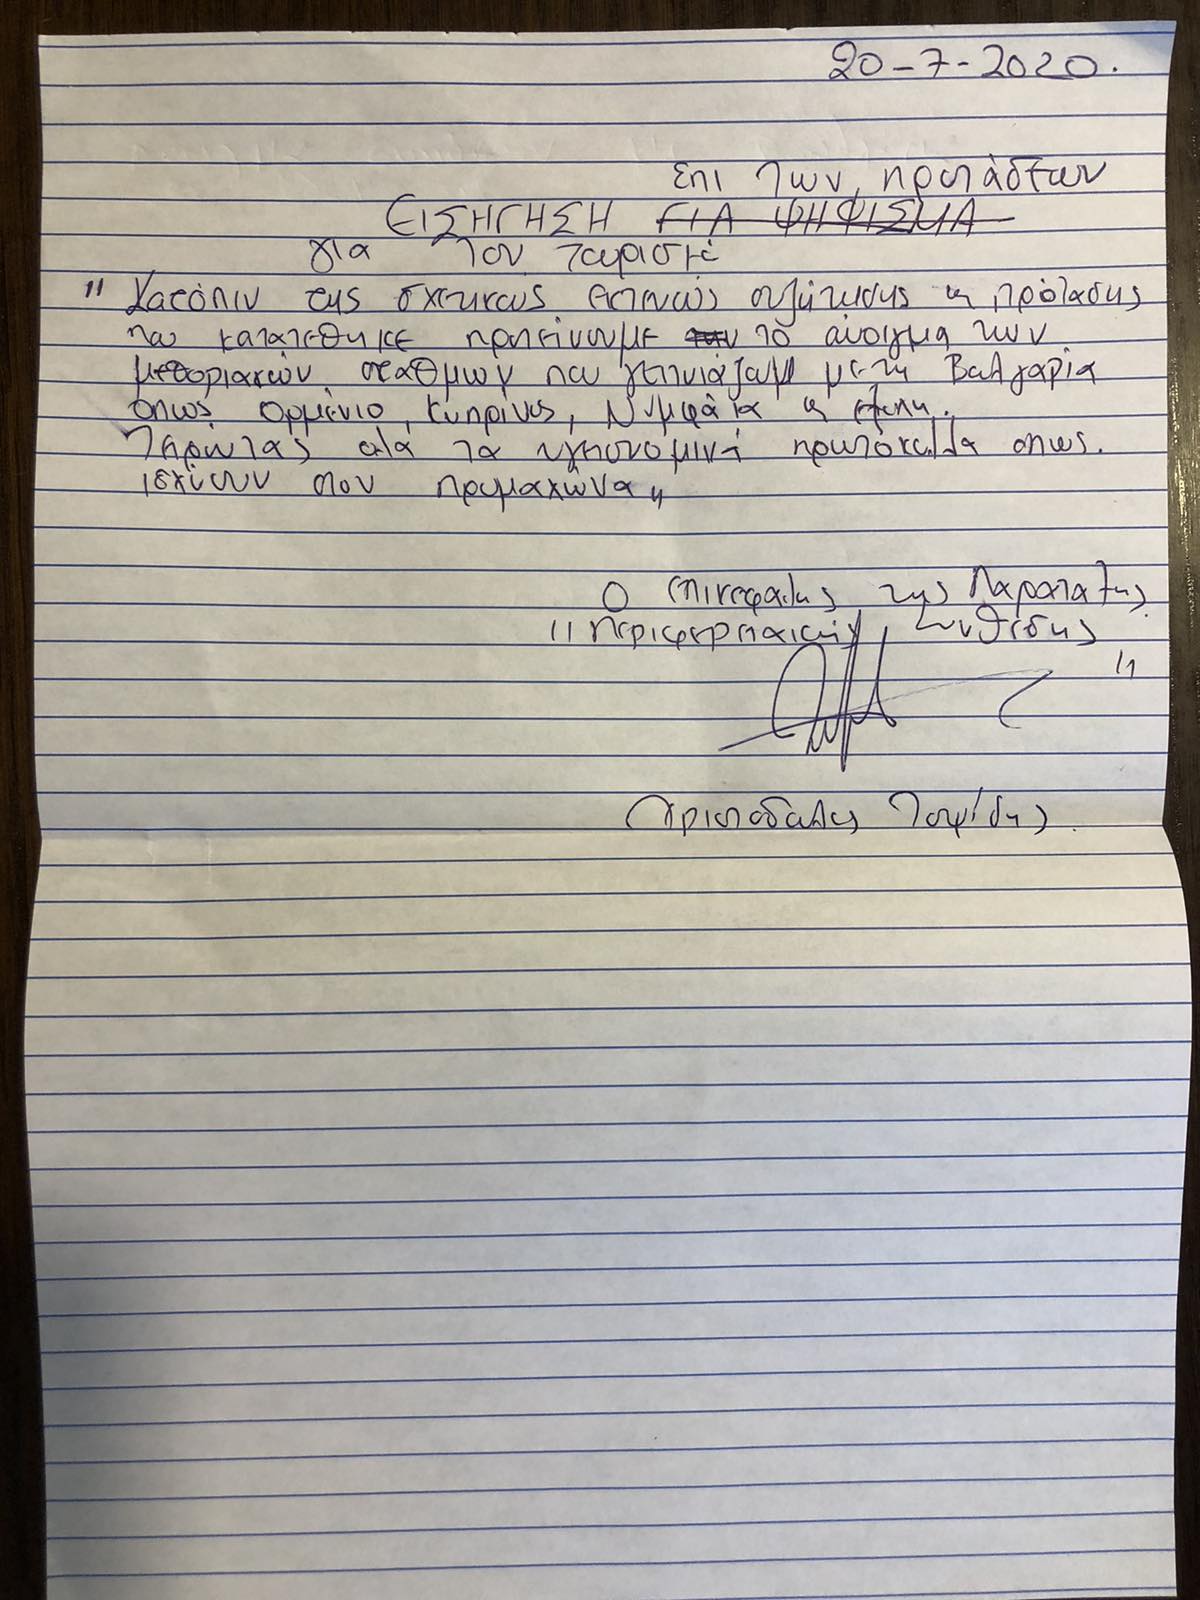 20-7-2020.
επι των προτάσεων
ΕΙΣΗΓΗΣΗ ΓΙΑ ΨΗΦΙΣΜΑ
για τον τουρισμό
" Κατόπιν της σχετικώς εκτενούς συζήτησης & πρότασης
που κατατέθηκε προτείνουμε το άνοιγμα των
μεθοριακών σταθμών που γειτνιάζουν με τη Βαλγαρία
όπως Ορμένιο, Κυπρίνος, Νυμφαία &
Τηρώντας όλα τα υγειονομικά πρωτόκολλα οπως.
ισχύουν στον προμαχώνα "
Ο επικεφαλης της Παραταξης
" Περιφερειακή Συνθεσης "
Χριστοδουλος Τοψίδης